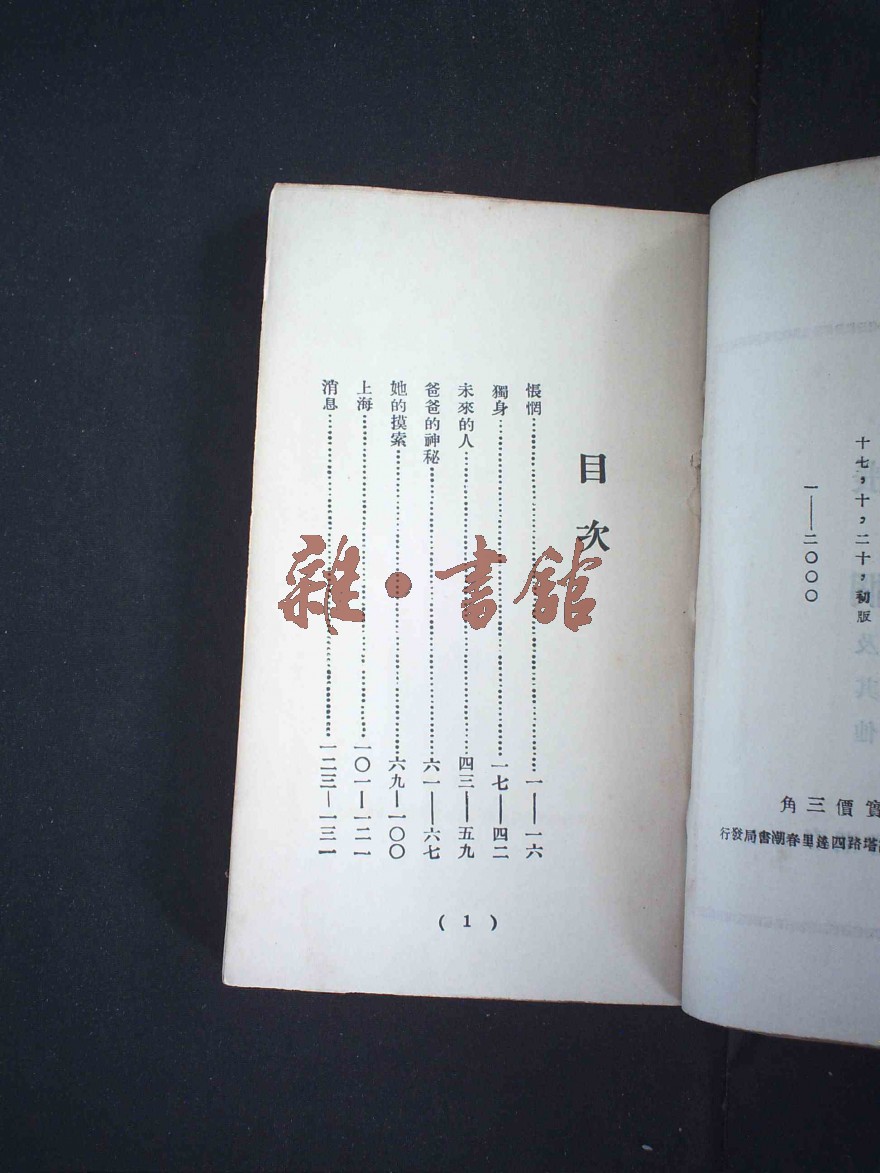 十七，十，二十，初版
一——二〇〇〇
實價三角
塔路四達里春潮書局發行
目次
悵惘……一——一六
獨身……一七——四二
未來的人……四三——五九
爸爸的神秘……六一——六七
她的摸索……六九——一〇〇
上海……一〇一——一二一
消息……一二三——一三一
( 1 )
雜·書館